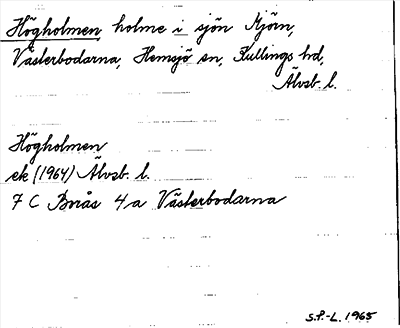 Högholmen, holme i sjön Mjörn,
Västerbodarna, Hemsjö sn, Kullings hd,
Älvsb. l.
Högholmen
ek (1964) Älvsb. l.
7 C Borås 4a Västerbodarna
S.P.-L. 1965